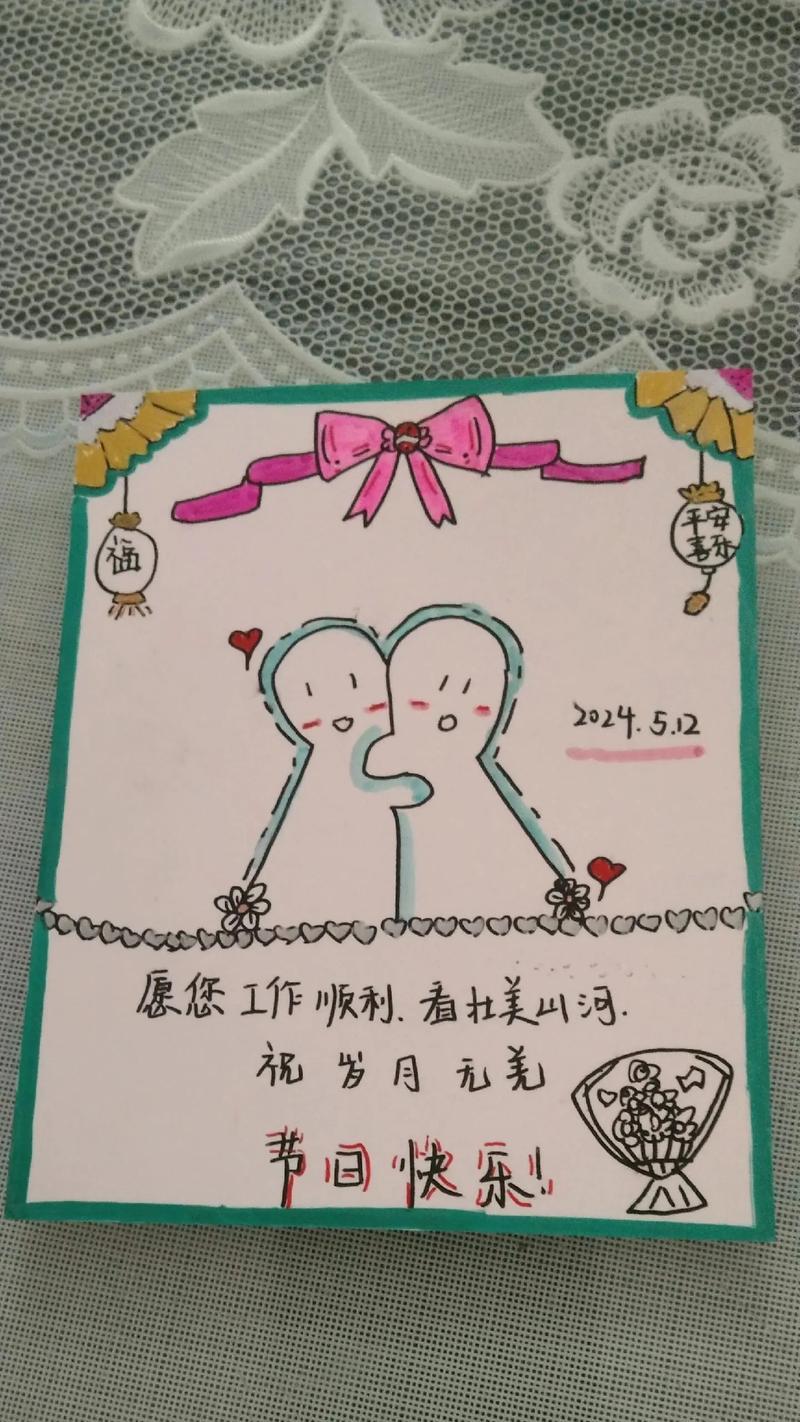 福
平安
喜乐
2024.5.12
愿您工作顺利、看壮美山河.
祝岁月无羌
节日快乐!